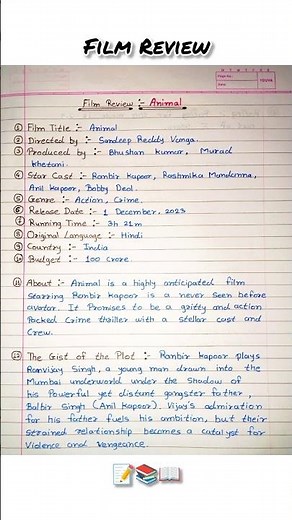 FILM REVIEW
Film Review :- Animal
① Film Title :- Animal
② Directed by :- Sandeep Reddy Vanga.
③ Produced by :- Bhushan kumar, Murad
khetani.
④ Star Cast :- Ranbir Kapoor, Rashmika Mandanna,
Anil Kapoor, Bobby Deol.
⑤ Genre :- Action, Crime.
⑥ Release Date :- 1 December, 2023
⑦ Running Time :- 3h 21m
⑧ Original Language :- Hindi
⑨ Country :- India
⑩ Budget :- 100 Crore.
⑪ About :- Animal is a highly anticipated film
starring Ranbir kapoor is a never seen before
avatar. It Promises to be a gritty and action
Packed Crime thriller with a stellar cast and
Crew.
⑫ The Gist of the Plot :- Ranbir kapoor plays
Ranvijay Singh, a young man drawn into the
Mumbai underworld under the shadow of
his Powerful yet distant gangster father,
Balbir Singh (Anil Kapoor). Vijay's admiration
for his father fuels his ambition, but their
Strained relationship becomes a catalyst for
Violence and Vengeance.